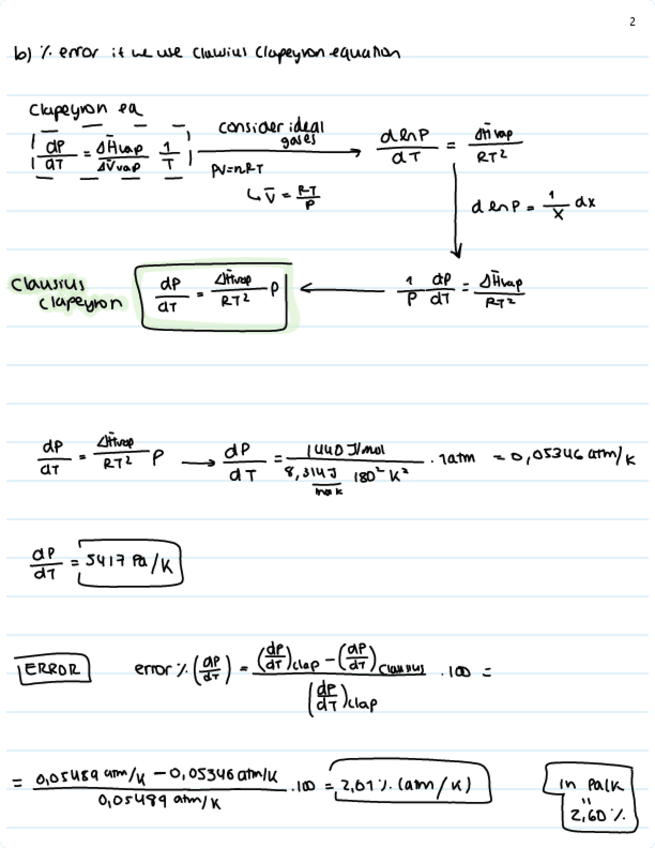 2
b) % error if we use Clausius Clapeyron equation
Clapeyron eq
dP/dT = ΔH̄vap/ΔV̄vap 1/T
consider ideal gases
PV=nRT
↳ V̄ = RT/P
d lnP/dT = ΔH̄vap/RT²
d lnP = 1/x dx
Clausius Clapeyron
dP/dT = ΔH̄vap/RT² P
1/P dP/dT = ΔH̄vap/RT²
dP/dT = ΔH̄vap/RT² P → dP/dT = 1440 J/mol / 8,314 J/mol K 180² K² · 1atm = 0,05346 atm/K
dP/dT = 5417 Pa/K
ERROR
error % (dP/dT) = (dP/dT)clap - (dP/dT)clausius / (dP/dT)clap · 100 =
= 0,05489 atm/K - 0,05346 atm/K / 0,05489 atm/K · 100 = 2,61 % (atm/K)
in Pa/K
"
2,60 %